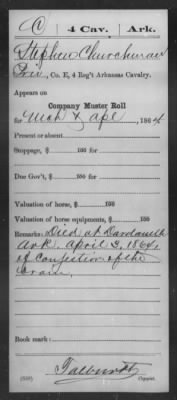 C | 4 Cav. | Ark.
Stephen Churchman
Priv., Co. E, 4 Reg't Arkansas Cavalry.
Appears on
Company Muster Roll
for Mch & Apl, 1864
Present or absent
Stoppage, $ 100 for
Due Gov't, $ 100 for
Valuation of horse, $ 100
Valuation of horse equipments, $ 100
Remarks: Died at Dardanelle
Ark. April 3, 1864,
of Congestion of the
Brain.
Book mark:
(358) Copyist.